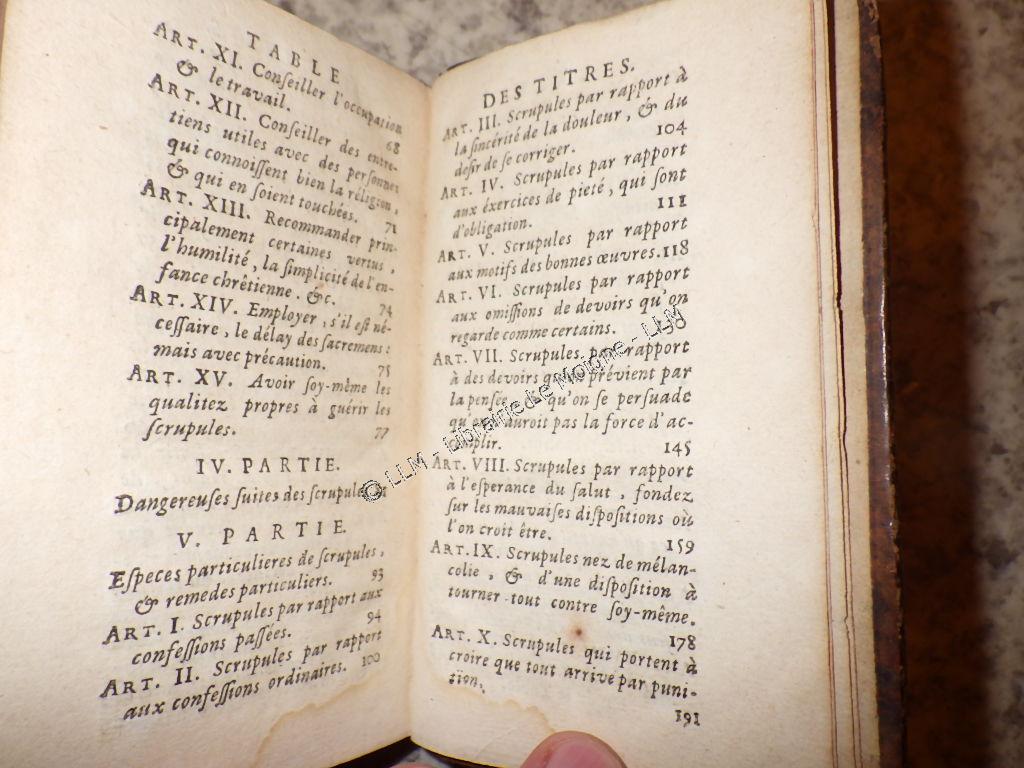 TABLE
ART. XI. Conſeiller l'occupation
& le travail. 68
ART. XII. Conſeiller des entre-
tiens utiles avec des perſonnes
qui connoiſſent bien la réligion,
& qui en ſoient touchées. 71
ART. XIII. Recommander prin-
cipalement certaines vertus,
l'humilité, la ſimplicité de l'en-
fance chrêtienne. &c. 74
ART. XIV. Employer, s'il eſt né-
ceſſaire, le délay des ſacremens:
mais avec précaution. 75
ART. XV. Avoir ſoy-même les
qualitez propres à guérir les
ſcrupules. 77
IV. PARTIE.
Dangereuſes ſuites des ſcrupules
V. PARTIE.
Eſpeces particulieres de ſcrupules,
& remedes particuliers. 93
ART. I. Scrupules par rapport aux
confeſſions paſſées. 94
ART. II. Scrupules par rapport
aux confeſſions ordinaires. 100
DES TITRES.
ART. III. Scrupules par rapport à
la ſincérité de la douleur, & du
deſir de ſe corriger. 104
ART. IV. Scrupules par rapport
aux éxercices de pieté, qui ſont
d'obligation. 111
ART. V. Scrupules par rapport
aux motifs des bonnes œuvres. 118
ART. VI. Scrupules par rapport
aux omiſſions de devoirs qu'on
regarde comme certains.
ART. VII. Scrupules par rapport
à des devoirs qu'on prévient par
la penſée qu'on ſe perſuade
auroit pas la force d'ac-
complir. 145
ART. VIII. Scrupules par rapport
à l'eſperance du ſalut, fondez
ſur les mauvaiſes diſpoſitions où
l'on croit être. 159
ART. IX. Scrupules nez de mélan-
colie, & d'une diſpoſition à
tourner tout contre ſoy-même.
178
ART. X. Scrupules qui portent à
croire que tout arrive par puni-
tion.
191
© LLM - Librairie Le Moigne - LLM